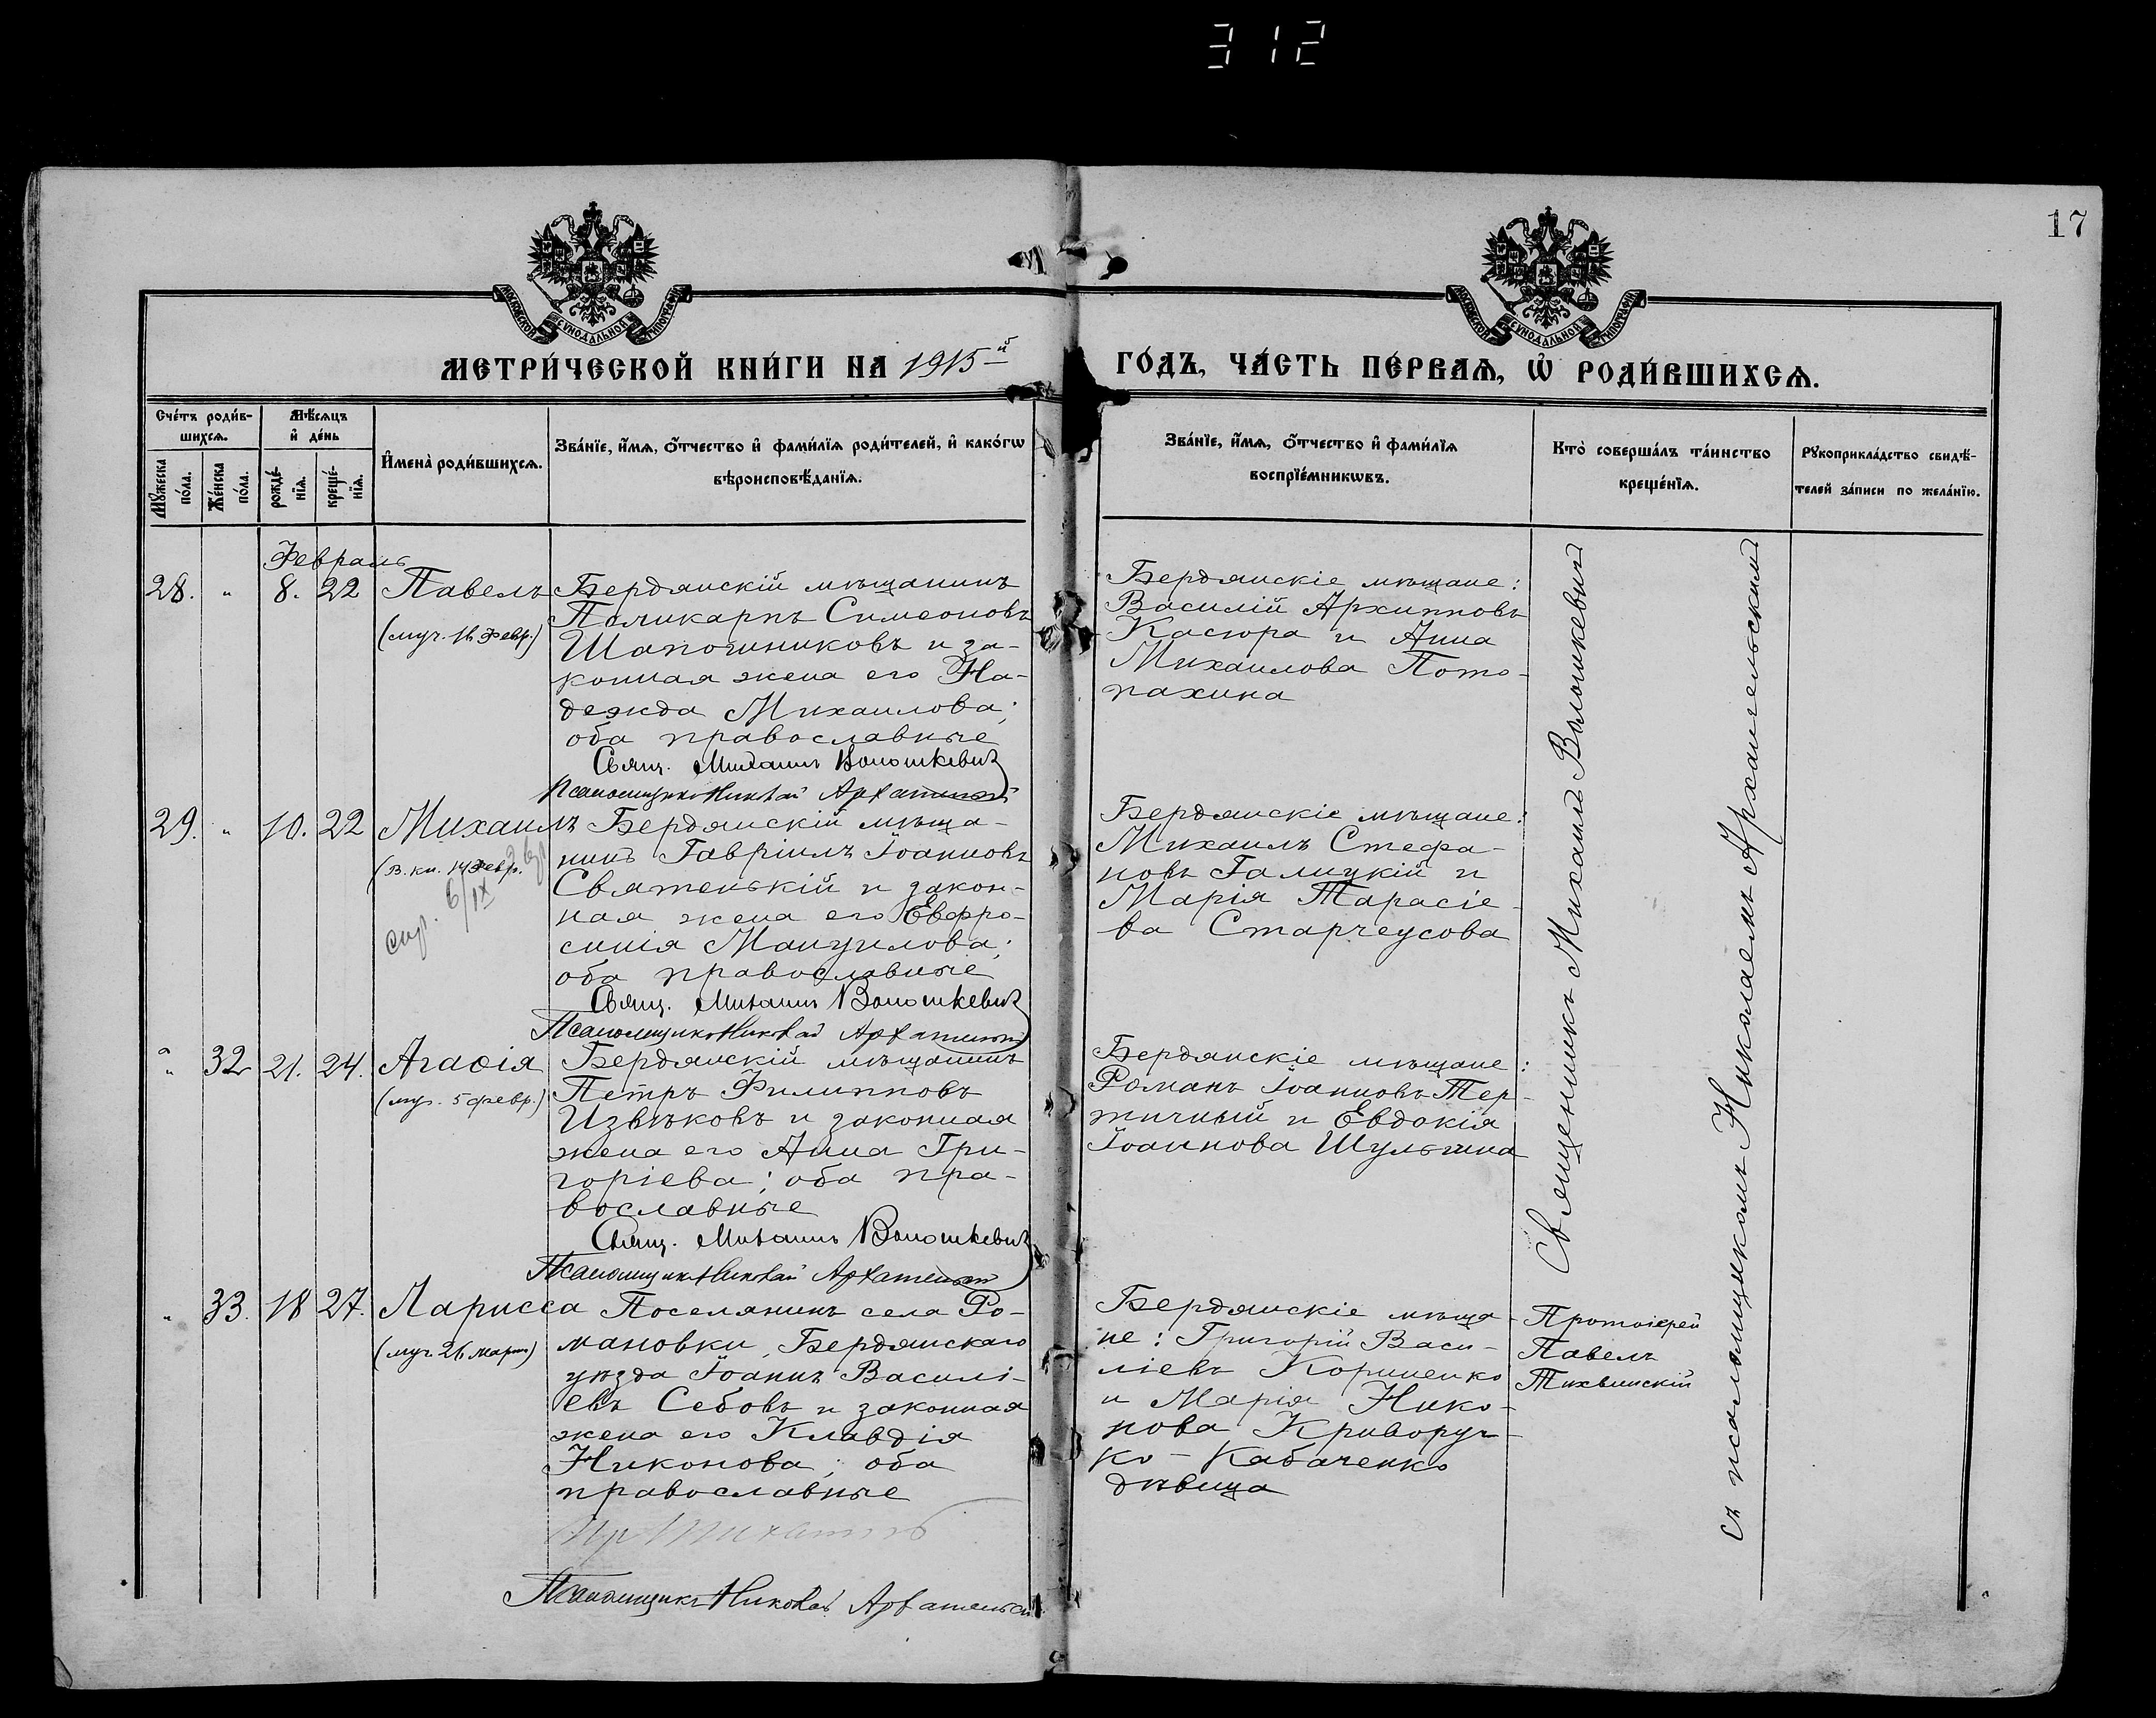 312
17
МОСКОВСКОЙ СѴНОДАЛЬНОЙ ТИПОГРАФІИ
МОСКОВСКОЙ СѴНОДАЛЬНОЙ ТИПОГРАФІИ
МЕТРИ́ЧЕСКОЙ КНИ́ГИ НА 1915й
ГО́ДЪ, ЧА́СТЬ ПЕ́РВАѦ, Ѡ҆ РОДИ́ВШИХСѦ.
Сче́тъ роди́в-
шихсѧ.
Мѣ́сѧцъ
и҆ де́нь
Мꙋ́жеска
по́ла.
Же́нска
по́ла.
рожде́-
нїѧ.
креще́-
нїѧ.
И҆мена̀ роди́вшихсѧ.
Зва́нїе, и҆́мѧ, ѻ҆́тчество и҆ фами́лїѧ роди́телей, и҆ како́гѡ
вѣроисповѣ́данїѧ.
Зва́нїе, и҆́мѧ, ѻ҆́тчество и҆ фами́лїѧ
воспрїе́мникѡвъ.
Кто̀ соверша́лъ та́инство
креще́нїѧ.
Рꙋкоприкла́дство свидѣ́-
телей за́писи по жела́нїю.
Февраль
28. " 8. 22 Павелъ
(муч. 16 февр.)
Бердянскій мѣщанинъ
Поликарпъ Симеоновъ
Шапошниковъ и за-
конная жена его На-
дежда Михаилова;
оба православные
Свящ. Михаилъ Волошкевичъ
Псаломщикъ Николай Архангельскій
Бердянскіе мѣщане:
Василій Архипповъ
Касюра и Анна
Михаилова Пото-
пахина
29. " 10. 22 Михаилъ
(в. кн. 14 февр.
6/IX
Бердянскій мѣща-
нинъ Гавріилъ Іоанновъ
Святенькій и закон-
ная жена его Евфро-
синія Мануилова;
оба православные
Свящ. Михаилъ Волошкевичъ
Псаломщикъ Николай Архангельскій
Бердянскіе мѣщане:
Михаилъ Стефа-
новъ Галицкій и
Марія Тарасіе-
ва Старчеусова
" 32 21. 24. Агаѳія
(муч. 5 февр.)
Бердянскій мѣщанинъ
Петръ Филипповъ
Извѣковъ и законная
жена его Анна Гри-
горіева; оба пра-
вославные
Свящ. Михаилъ Волошкевичъ
Псаломщикъ Николай Архангельскій
Бердянскіе мѣщане:
Романъ Іоанновъ Тер-
тичный и Евдокія
Іоаннова Шульгина
" 33. 18 27. Ларисса
(муч. 26 марта)
Поселянинъ села Ро-
мановки, Бердянскаго
уѣзда Іоаннъ Василі-
евъ Себовъ и законная
жена его Клавдія
Никонова; оба
православные
Псаломщикъ Николай Архангельскій
Бердянскіе мѣща-
не: Григорій Васи-
ліевъ Кориненко
и Марія Нико-
нова Криворуч-
ко-Кабаченко
дѣвица
Протоіерей
Павелъ
Тихвинскій
Священникъ Михаилъ Волошкевичъ
съ псаломщикомъ Николаемъ Архангельскимъ